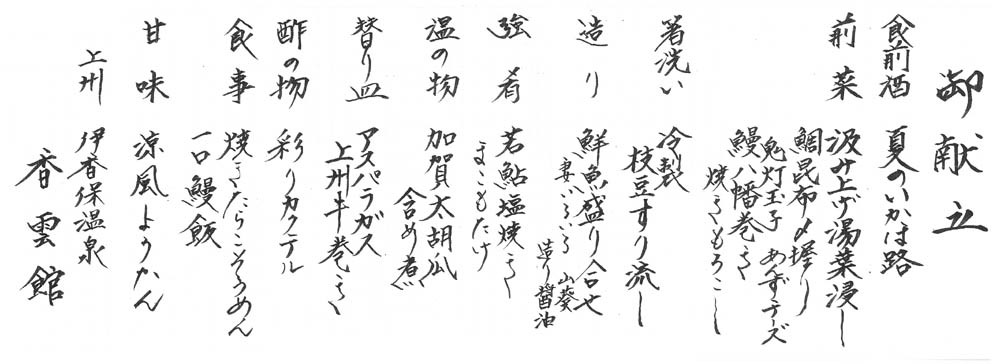 御献立
食前酒 夏のいかほ路
前菜 汲み上げ湯葉浸し
鯛昆布〆握り
鬼灯玉子 あんずチーズ
鰻八幡巻き
焼きもろこし
箸洗い 冷製
枝豆すり流し
造り 鮮魚盛り合せ
妻いろいろ 山葵
造り醤油
強肴 若鮎塩焼き
まこもたけ
温の物 加賀太胡瓜
含め煮
替り皿 アスパラガス
上州牛巻き
酢の物 彩りカクテル
食事 焼きたらこそうめん
一口鰻飯
甘味 涼風ようかん
上州 伊香保温泉
香雲館